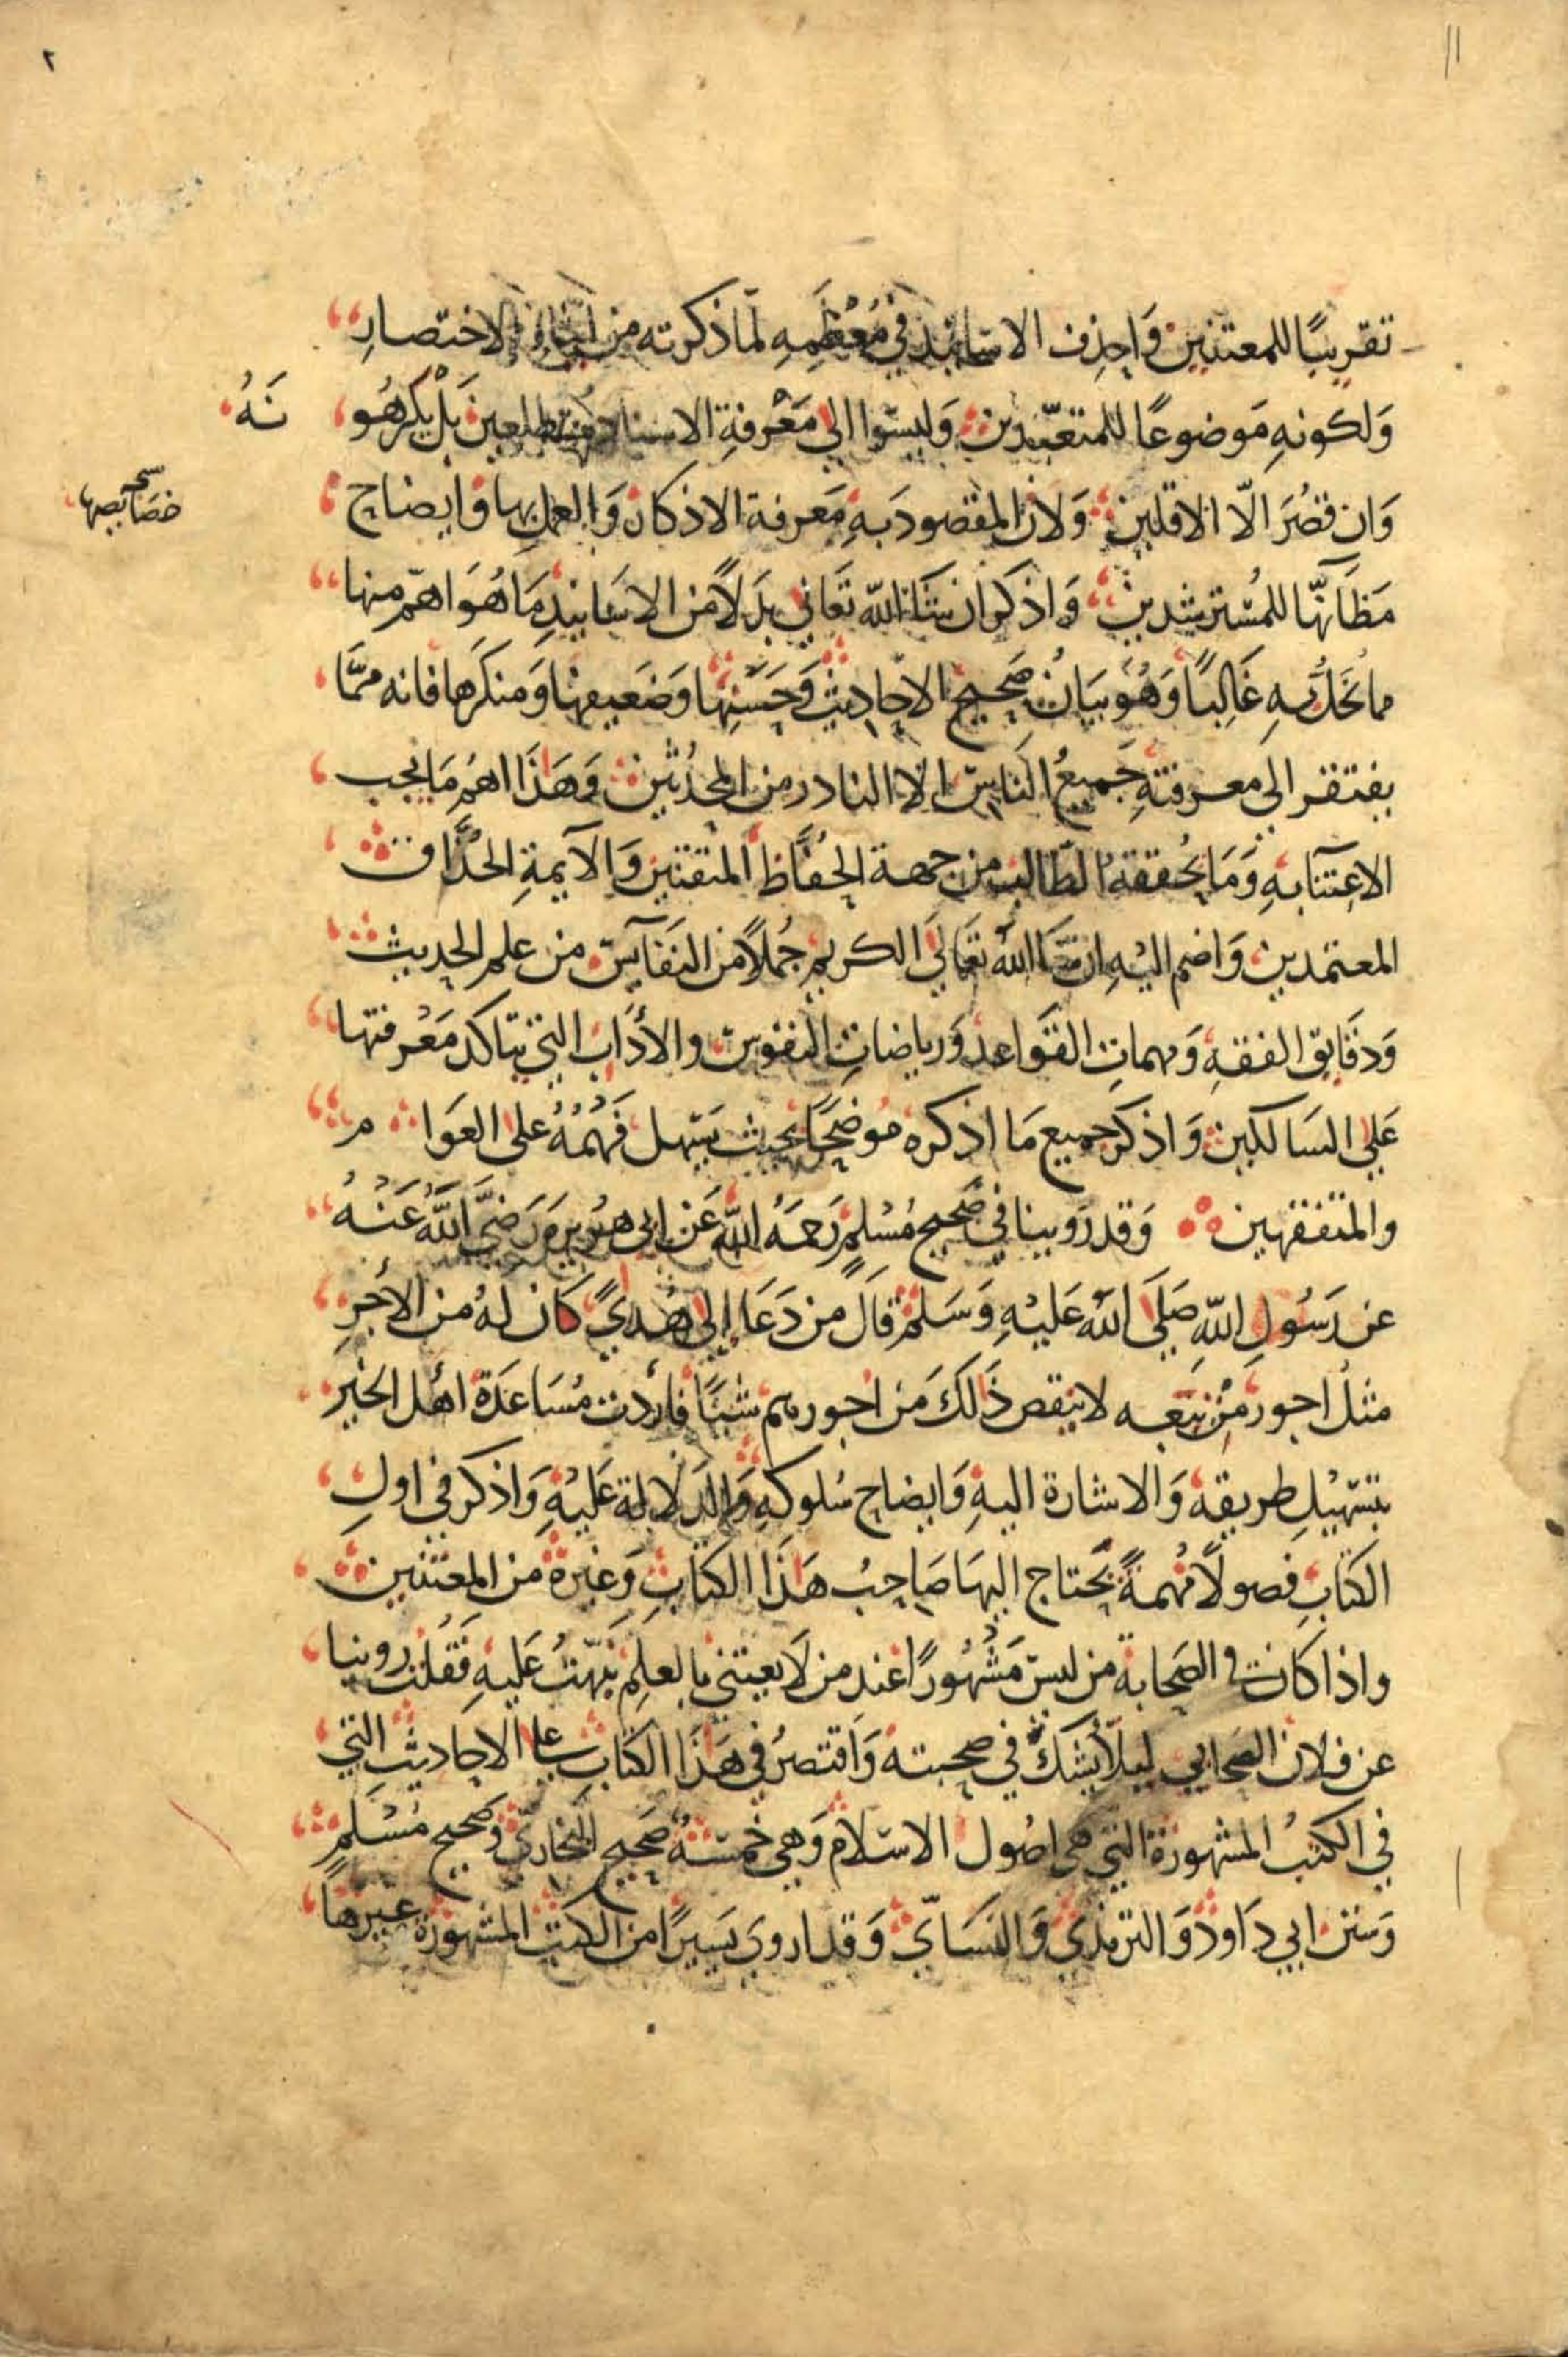 ٢
١١
تقريبًا للمعتنين وَاحذِف الاسانيد في مُعْظَمِهِ لما ذكرته من ايثار الاختصارِ
وَلكونهِ مَوضوعًا للمتعبّدين وَليسوا الي مَعْرفةِ الاسناد متطلعين بَلْ يكرهُو نَهُ
وَان قصُرَ الّا الاقلين وَلان المقصودَ بهِ مَعَرفة الاذكار وَالعمل بها وَايضاح
خصَايصها صح
مَظَانّها للمُسْترشدين وَاذكر ان شَاءَ الله تَعَالي بدَلاً من الاسَانيدِ مَا هُوَ اهمّ منها
مما يخلُّ بهِ غَالِبًا وَهُوَ بيَانُ صَحيح الاحاديث وَحَسَنِها وَضَعيفها وَمنكرَها فانه ممَّا
يفتقر الي معرفتهِ جَميعُ النَاسِ الا النادر من المحدّثين وَهَذَا اهمُ مَا يجب
الاعتنَآ بهِ وَمَا يُحققهُ الطَالب من جهة الحُفّاظ المتقنين وَالآيمةِ الحُذَّاق
المعتمدين وَاضم اليْهِ ان شَا الله تَعَالَي الكريم جُملاً من النفَآيس من علم الحديث
وَدقَايق الفقهِ وَمهماتِ القوَاعد وَرياضاتِ النفوس والأدَاب التي يتاكد مَعْرفتها
عَلي السَالكين وَاذكر جميع مَا اذكره مُوضحًا بحيث يَسهل فَهْمُهُ علي العَوَا م
والمتفقهين وَقد رَوينا في صَحيح مُسْلمٍ رَحمَهُ الله عَن ابي هُريرَه رَضيَّ اللَّهُ عَنْهُ
عن رَسُول اللّهِ صَلَي اللّه عَليْهِ وَسَلم قالَ من دَعَا إلي هُديً كَان لهُ من الأجرِ
مثلُ اجور مَنْ تبَعه لا ينقص ذَالكَ مَن اجورهم شيًا فأردت مُسَاعدَة اهْل الخيْر
بتسْهيْلِ طريقه وَالاشارة اليهِ وَايضاح سُلوكهِ وَالدَلالة عَليْهِ وَاذكر في اولِ
الكتَابِ فصولاً مُهمةً يحتَاج اليهَا صَاحِبُ هَذَا الكتابِ وَغيره من المعتنين
واذا كان في الصحابة من ليس مَشْهُورًا عند من لَا يعتني بالعلمِ نَبّهتُ عَليهِ فَقُلتُ روينا
عن فلان الصحابي ليلاّ يُشَكّ في صحبته وَاقتصرُ في هَذَا الكتابِ علي الاحاديثِ التي
في الكتبُ المشهورة التي هي اصُول الاسْلام وَهي خمسَةٌ صَحيح البخاري وَصحيح مُسْلمٍ
وَسنن ابي دَاود وَالترمذي وَالنسَايّ وَقد اروي يَسيرًا من الكتب المشهورة غيرهَا